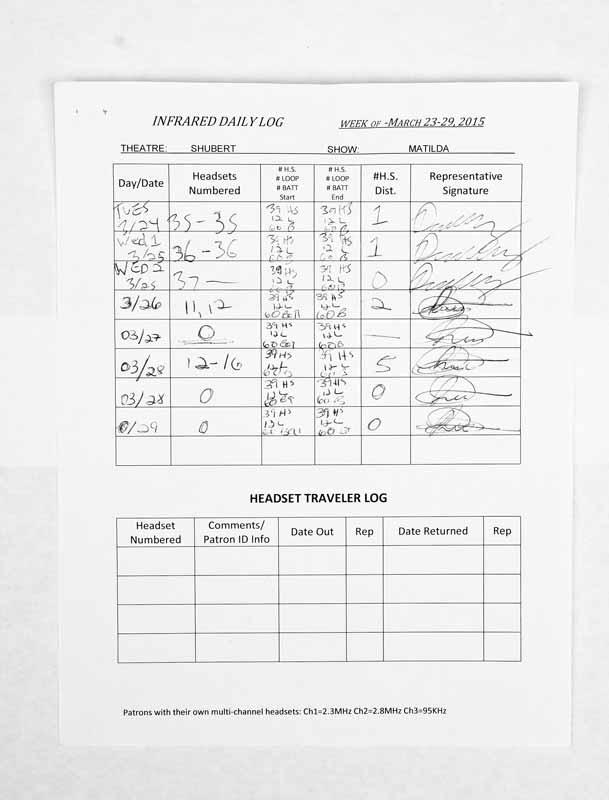 INFRARED DAILY LOG WEEK OF -MARCH 23-29, 2015
THEATRE: SHUBERT SHOW: MATILDA
Day/Date Headsets Numbered # H.S. # LOOP # BATT Start # H.S. # LOOP # BATT End #H.S. Dist. Representative Signature
TUES 3/24 35-35 39 HS 12 L 60 B 39 HS 12 L 60 B 1
Wed 1 3/25 36-36 39 HS 12 L 60 B 39 HS 12 L 60 B 1
WED 2 3/25 37— 39 HS 12 L 60 B 39 HS 12 L 60 B 0
3/26 11,12 39 HS 12 L 39 HS 12 L 60 B 2
03/27 0 39 HS 12 L 39 HS 12 L 60 B —
03/28 12-16 39 HS 12 L 39 HS 12 L 5
03/28 0 39 HS 12 L 39 HS 12 L 60 B 0
0/29 0 39 HS 12 L 39 HS 12 L 0
HEADSET TRAVELER LOG
Headset Numbered Comments/ Patron ID Info Date Out Rep Date Returned Rep
Patrons with their own multi-channel headsets: Ch1=2.3MHz Ch2=2.8MHz Ch3=95KHz